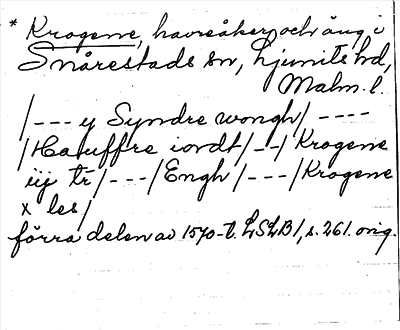 * Krogene, havreåker och äng i
Snårestads sn, Ljunits hd,
Malm. l.
/--- y Syndre wongh/ ----
/Hauffre iordt/--/ Krogene
iij tr/---/Engh/---/Krogene
x les/
förra delen av 1570-t. LSLB 1, s. 261. orig.